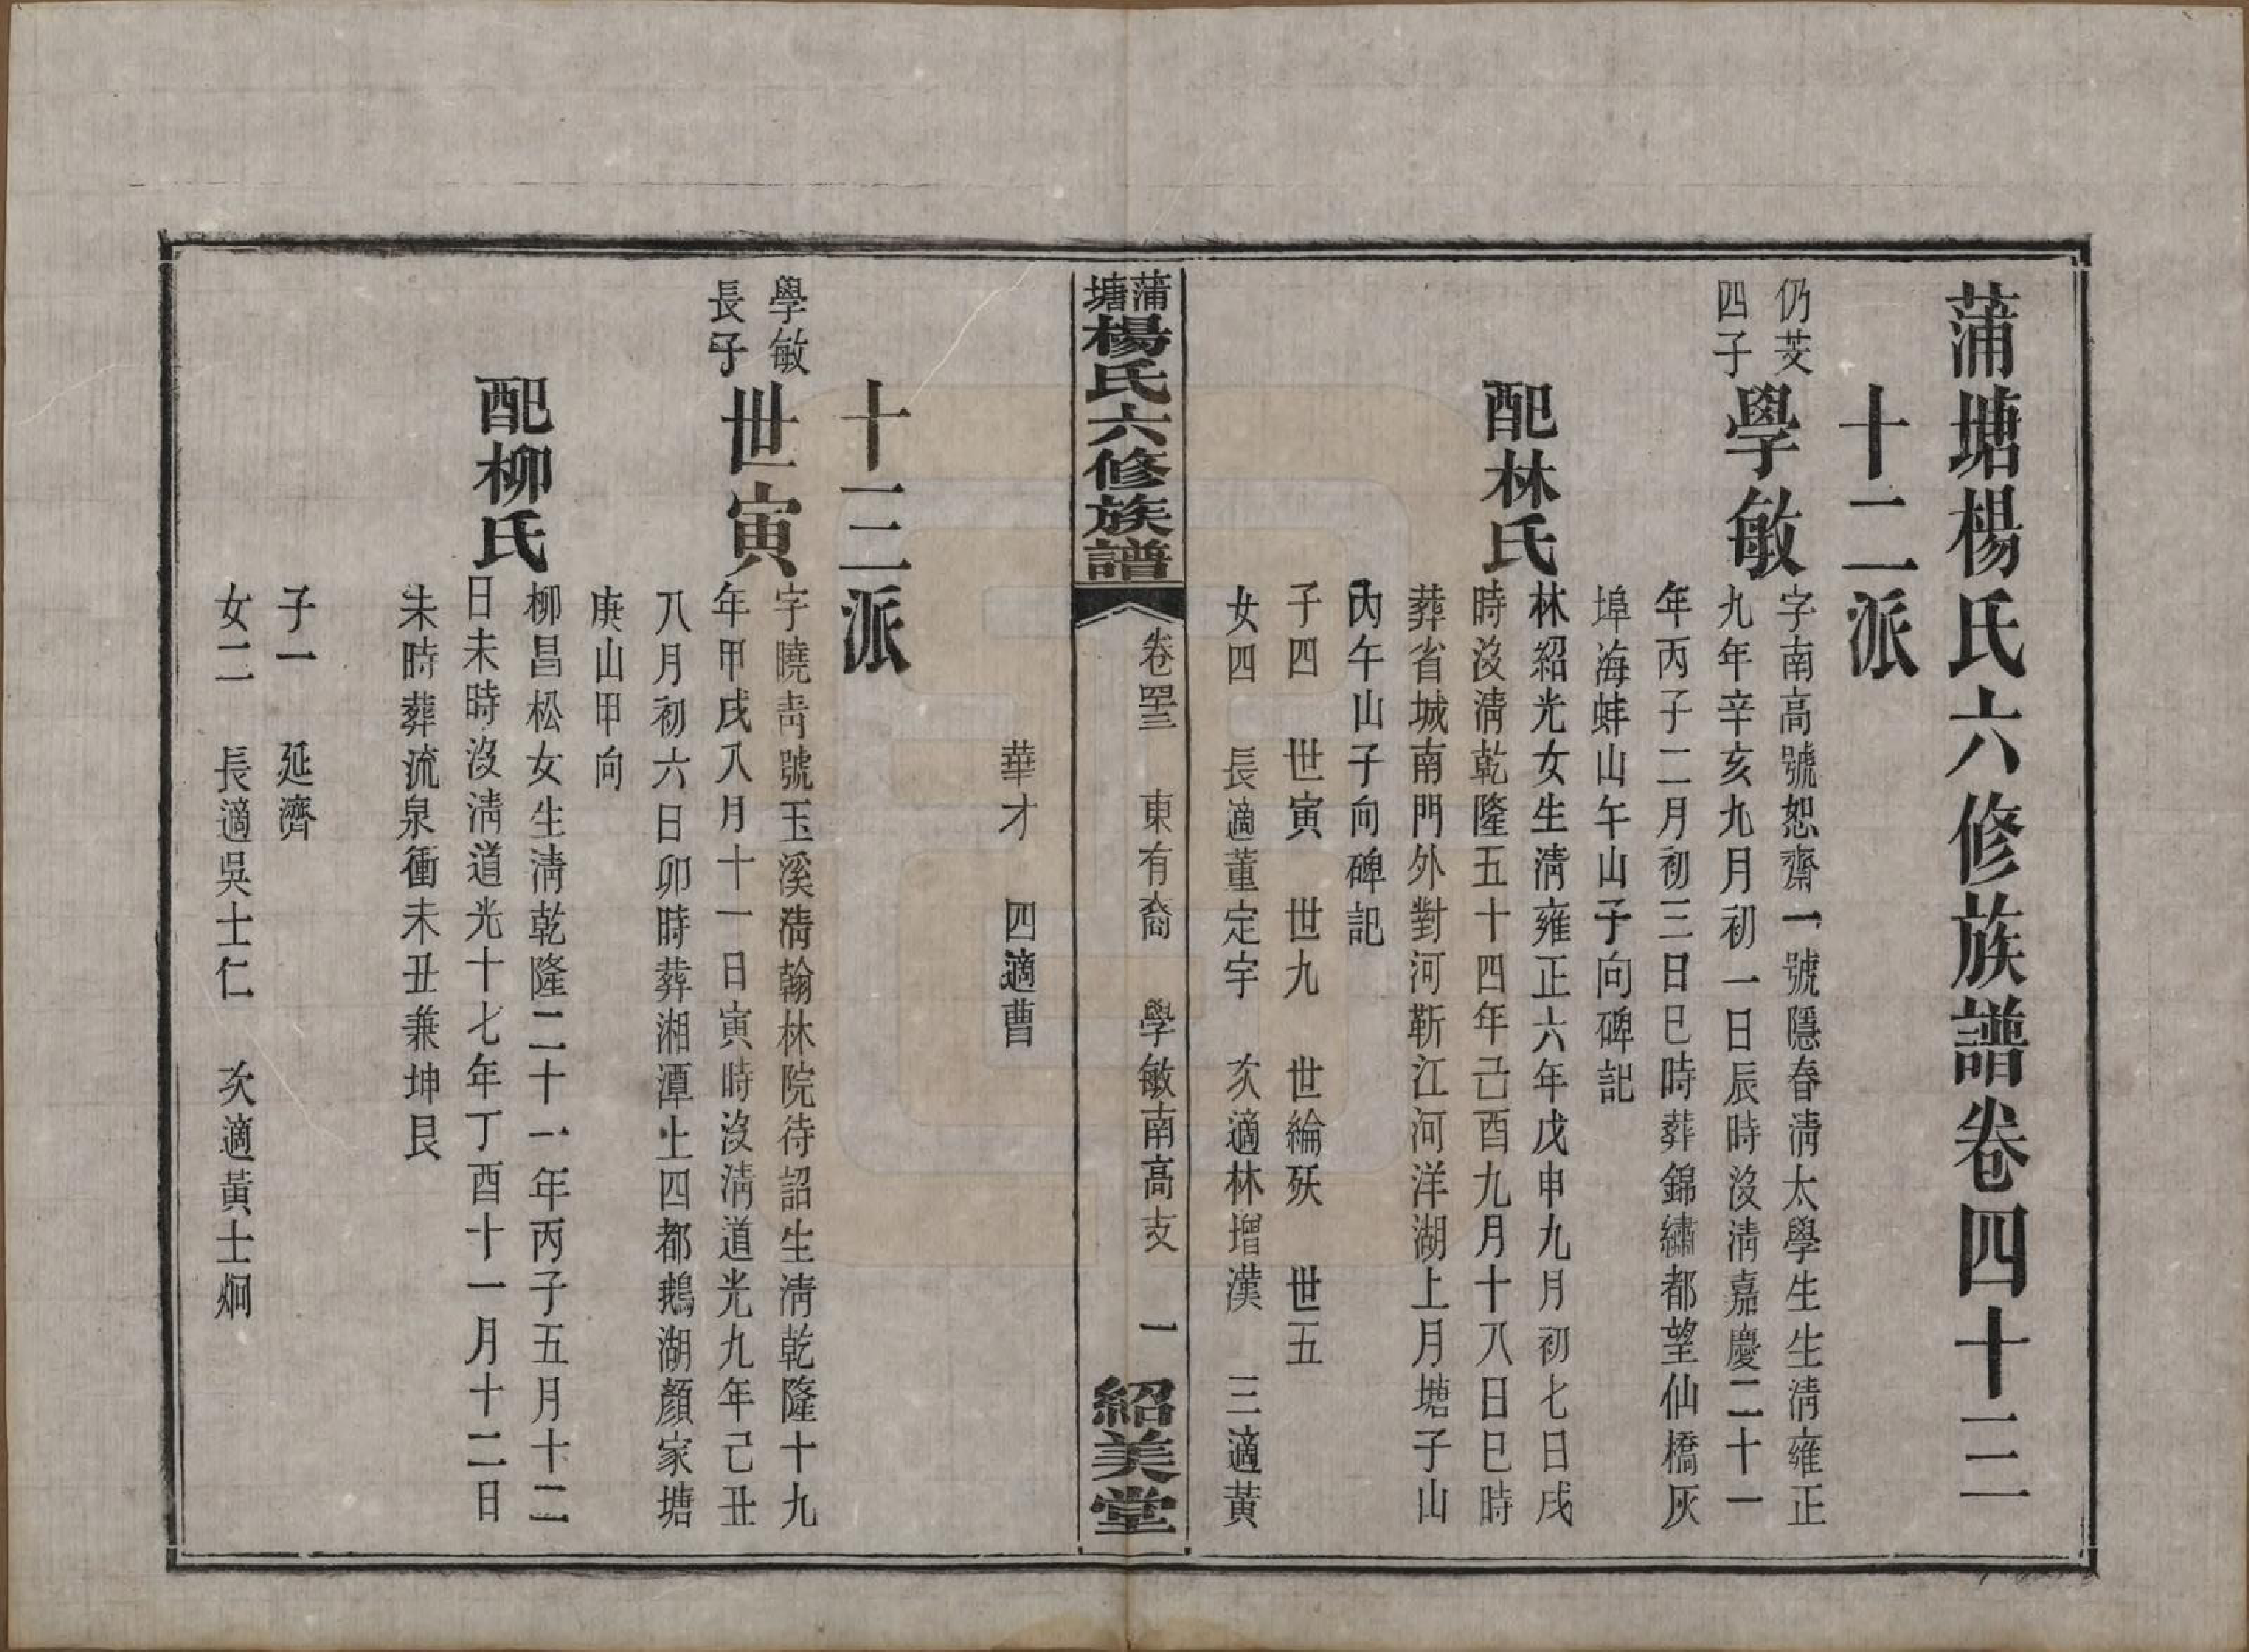 蒲塘楊氏六修族譜卷四十三
十二派
仍芟
四子
學敏
字南高號恕齋一號隱春淸太學生生淸雍正
九年辛亥九月初一日辰時沒淸嘉慶二十一
年丙子二月初三日巳時葬錦繡都望仙橋灰
埠海蚌山午山子向碑記
配林氏
林紹光女生淸雍正六年戊申九月初七日戌
時沒淸乾隆五十四年己酉九月十八日巳時
葬省城南門外對河靳江河洋湖上月塘子山
內午山子向碑記
子四 世寅 世九 世綸殀 世五
女四 長適董定宇 次適林增漢 三適黃
蒲塘楊氏六修族譜
卷四三 東有裔 學敏南高支 一
紹美堂
華才 四適曹
十三派
學敏
長子
世寅
字曉靑號玉溪淸翰林院待詔生淸乾隆十九
年甲戌八月十一日寅時沒淸道光九年己丑
八月初六日卯時葬湘潭上四都鵝湖顏家塘
庚山甲向
配柳氏
柳昌松女生淸乾隆二十一年丙子五月十二
日未時沒淸道光十七年丁酉十一月十二日
未時葬流泉衝未丑兼坤艮
子一 延濟
女二 長適吳士仁 次適黃士烱